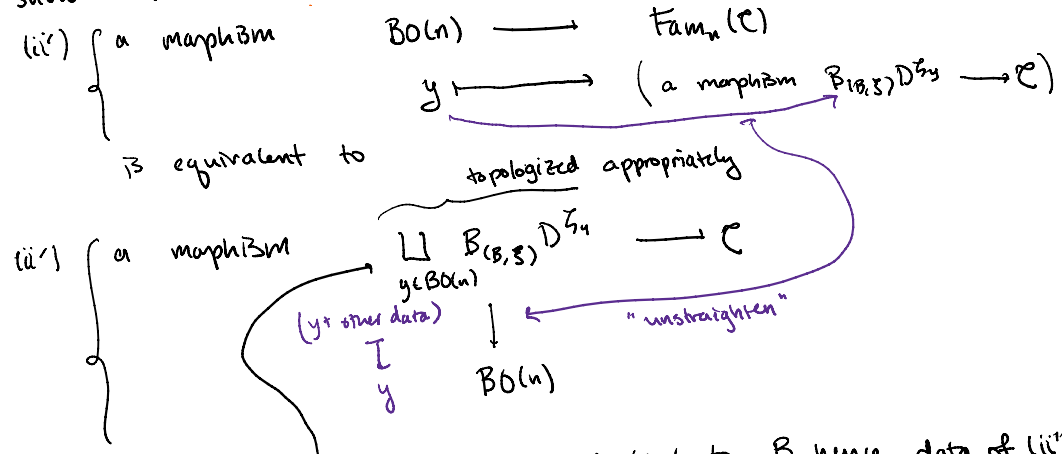 (ii') { a morphism BO(n) ⟶ Fam_n(C)
y ⟼ (a morphism B_{(B,ξ)}D^{ζ_y} ⟶ C)
is equivalent to
topologized appropriately
(ii') { a morphism ⨆_{y∈BO(n)} B_{(B,ξ)}D^{ζ_y} ⟶ C
(y + other data) ↓ "unstraighten"
y BO(n)
B, hence data of (ii''